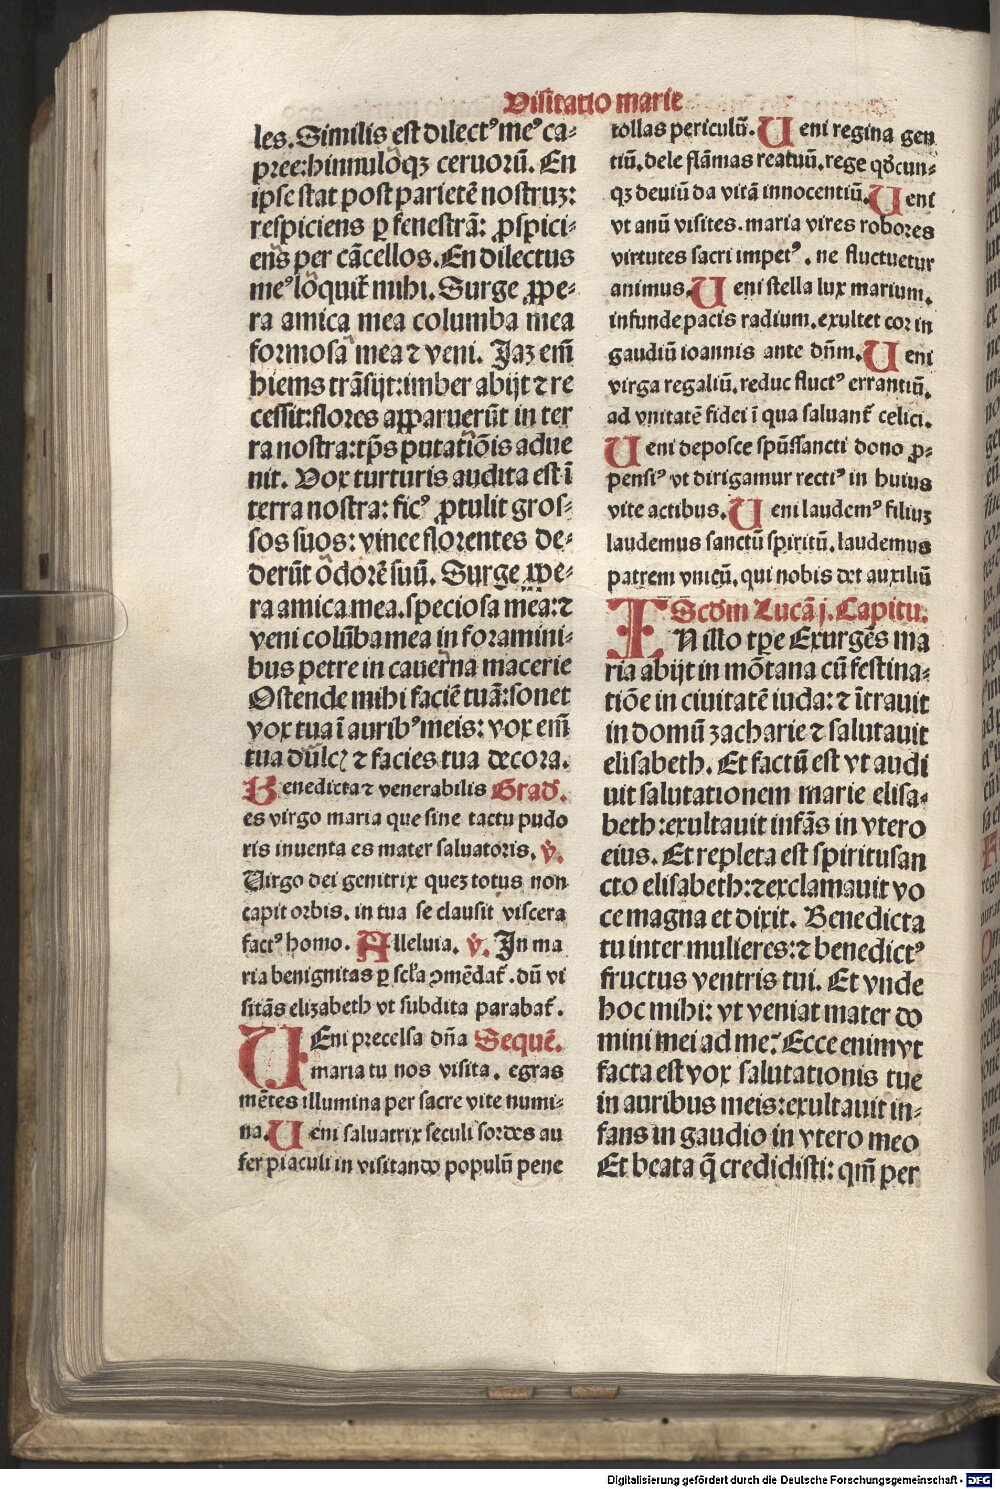 Visitatio marie
les. Similis est dilectꝰ meꝰ ca⸗
pree: hinnuloqꝫ ceruorū. En
ipse stat post parietē nostruꝫ:
respiciens ꝑ fenestrā: ꝓspici⸗
ens per cācellos. En dilectus
meꝰ loquit̄ mihi. Surge ꝓpe⸗
ra amica mea columba mea
formosa mea ⁊ veni. Jaꝫ em̄
hiems trāsijt: imber abijt ⁊ re
cessit: flores apparuerūt in ter
ra nostra: tp̄s putatiōis adue
nit. Vox turturis audita est ī
terra nostra: ficꝰ ꝓtulit gros⸗
sos suos: vinee florentes de⸗
derūt odorē suū. Surge ꝓpe⸗
ra amica mea. speciosa mea: ⁊
veni colūba mea in foramini⸗
bus petre in cauerna macerie
Ostende mihi faciē tuā: sonet
vox tua ī auribꝰ meis: vox em̄
tua dulcꝭ ⁊ facies tua decora.
Benedicta ⁊ venerabilis Grad̄.
es virgo maria que sine tactu pudo
ris inuenta es mater saluatoris. v̄.
Virgo dei genitrix queꝫ totus non
capit orbis. in tua se clausit viscera
factꝰ homo. Alleluia. v̄. In ma
ria benignitas ꝑ scl̄a ꝯmēdat̄. dū vi
sitās elizabeth vt subdita parabat̄.
VEni precelsa dn̄a Sequē.
maria tu nos visita. egras
mētes illumina per sacre vite numi⸗
na. Ueni saluatrix seculi sordes au
fer piaculi in visitando populū pene
tollas periculū. Ueni regina gen
tiū. dele flāmas reatuū. rege qd̄cun⸗
qꝫ deuiū da vitā innocentiū. Ueni
vt anū visites. maria vires robores
virtutes sacri impetꝰ. ne fluctuetur
animus. Ueni stella lux marium.
infunde pacis radium. exultet cor in
gaudiū ioannis ante dn̄m. Ueni
virga regaliū. reduc fluctꝰ errantiū.
ad vnitatē fidei ī qua saluant̄ celici.
Ueni deposce spūssancti dono ꝓ⸗
pensiꝰ vt dirigamur rectiꝰ in huius
vite actibus. Ueni laudemꝰ filiuꝫ
laudemus sanctū spiritū. laudemus
patrem vnicū. qui nobis det auxiliū
Scd̄m Lucā j. Capitu.
IN illo tp̄e Exurgēs ma
ria abijt in mōtana cū festina⸗
tiōe in ciuitatē iuda: ⁊ ītrauit
in domū zacharie ⁊ salutauit
elisabeth. Et factū est vt audi
uit salutationem marie elisa⸗
beth: exultauit infās in vtero
eius. Et repleta est spiritusan
cto elisabeth: ⁊ exclamauit vo
ce magna et dixit. Benedicta
tu inter mulieres: ⁊ benedictꝰ
fructus ventris tui. Et vnde
hoc mihi: vt veniat mater do
mini mei ad me? Ecce enim vt
facta est vox salutationis tue
in auribus meis: exultauit in⸗
fans in gaudio in vtero meo
Et beata q̄ credidisti: qm̄ per
Digitalisierung gefördert durch die Deutsche Forschungsgemeinschaft - DFG